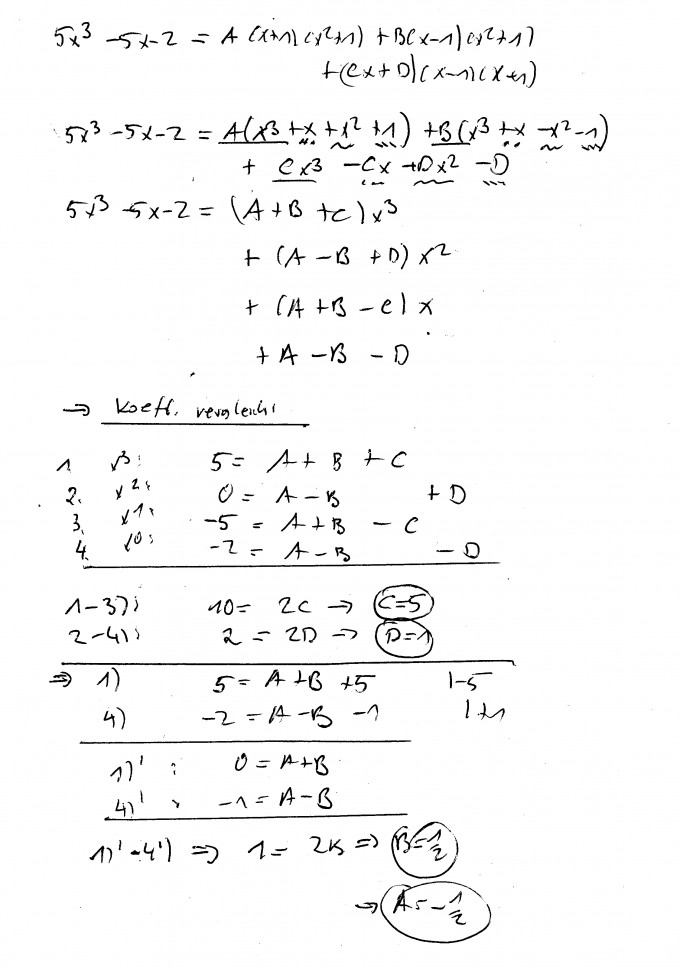 5x³ -5x-2 = A(x+1)(x²+1) +B(x-1)(x²+1)
+(Cx+D)(x-1)(x+1)
5x³ -5x-2 = A(x³+x+x²+1) +B(x³+x-x²-1)
+ Cx³ -Cx +Dx² -D
5x³ -5x-2 = (A+B+C)x³
+ (A-B+D)x²
+ (A+B-C)x
+ A-B-D
⇒ Koeff. vergleich:
1. x³: 5= A+B+C
2. x²: 0= A-B +D
3. x¹: -5 = A+B -C
4. x⁰: -2 = A-B -D
1-3): 10= 2C → C=5
2-4): 2 = 2D → D=1
⇒ 1) 5= A+B+5 |-5
4) -2 = A-B-1 |+1
1)' : 0=A+B
4)' : -1=A-B
1)'-4') ⇒ 1= 2B ⇒ B=½
⇒ A=-½